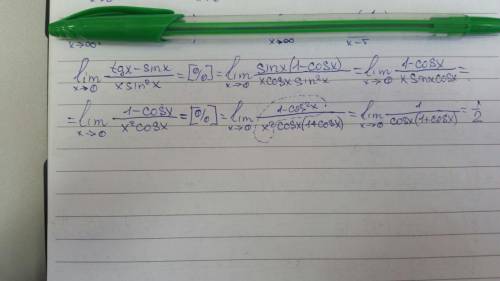 x→∞ x→∞ x→5
lim x→0 (tgx-sinx)/(x sin²x) = [0/0] = lim x→0 (sinx(1-cosx))/(xcosx sin²x) = lim x→0 (1-cosx)/(x sinxcosx) =
= lim x→0 (1-cosx)/(x²cosx) = [0/0] = lim x→0 (1-cos²x)/(x²cosx(1+cosx)) = lim x→0 1/(cosx(1+cosx)) = 1/2